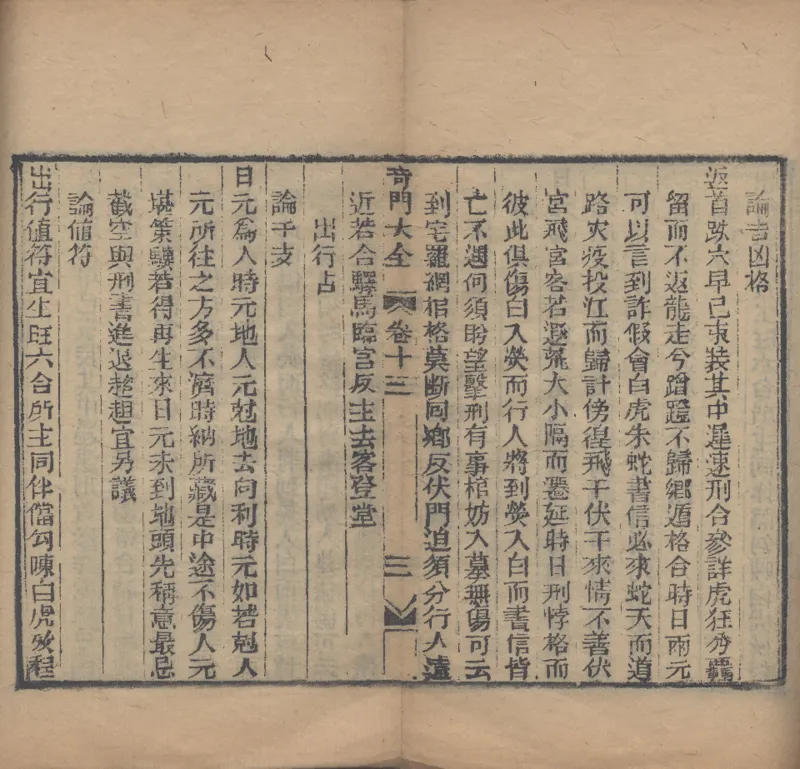 論吉凶格
返首跌穴早已束裝其中遲速刑合參詳虎狂分羈
留而不返龍走兮蹭蹬不歸鄉遁格合時日兩元
可以言到詐假會白虎朱蛇書信必來蛇夭而道
路灾疫投江而歸計傍徨飛干伏干來情不善伏
宮飛宮客若遲飛大小隔而遷延時日刑悖格而
彼此俱傷白入熒而行人將到熒入白而書信皆
亡不遇何須盼望擊刑有事棺妨入墓無傷可云
到宅羅網棺格莫斷回鄉反伏門迫須分行人遠
奇門大全 卷十三 三
近若合驛馬臨宮反主去客登堂
出行占
論干支
日元爲人時元地人元尅地去向利時元如若剋人
元所往之方多不濟時納所藏是中途不傷人元
堪策驥若得再生來日元未到地頭先稱意最忌
截空與刑害進退趑趄宜另議
論值符
出行值符宜生旺六合所主同伴儅勾陳白虎災程